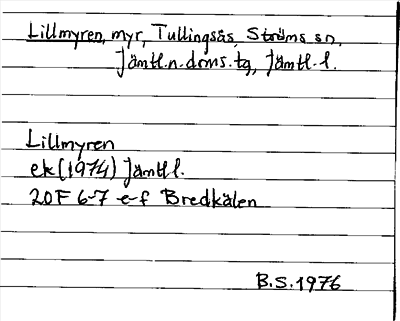 Lillmyren, myr, Tullingsås, Ströms sn,
Jämtl.n.doms.tg, Jämtl.l.
Lillmyren
ek (1974) Jämtl l.
20F 6-7 e-f Bredkälen
B.S. 1976